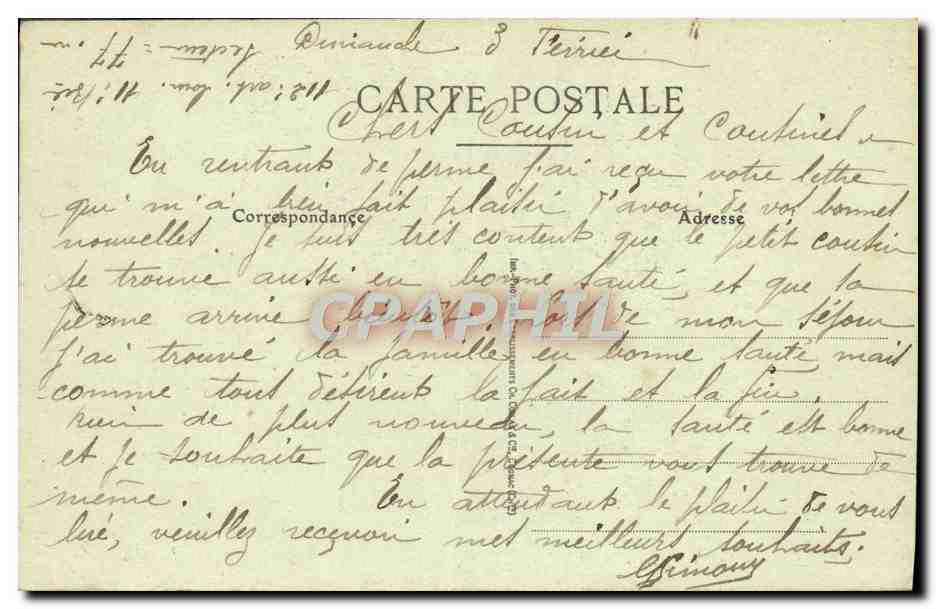 Dimanche 3 Février
Secteur = 77
112e art. lour.
CARTE POSTALE
Chers Cousin et Cousines
En rentrant de perme j'ai reçu votre lettre
qui m'a bien fait plaisir d'avoir de vos bonnes
Correspondance
Adresse
nouvelles. Je suis très content que le petit cousin
se trouve aussi en bonne santé, et que sa
perme arrive bientôt. Lors de mon séjour
CPAPHIL
j'ai trouvé la famille en bonne santé mais
comme tous désirent la paix et la fin.
Rien de plus nouveau, la santé est bonne
et je souhaite que la présente vous trouve de
même. En attendant le plaisir de vous
lire, veuillez recevoir mes meilleurs souhaits.